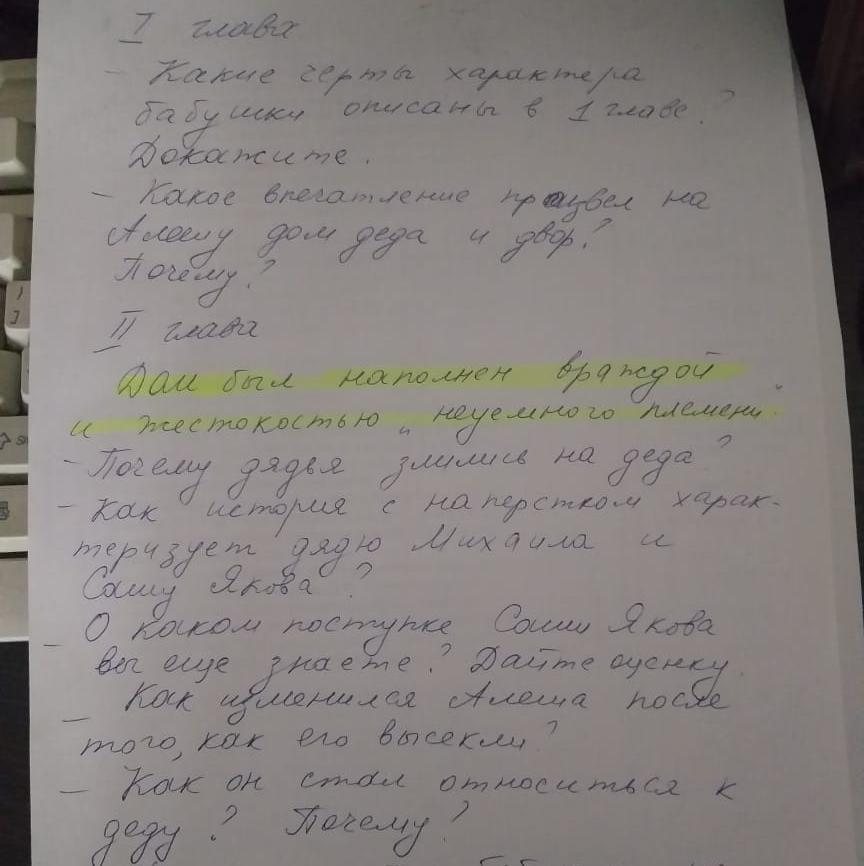 I глава
- Какие черты характера
бабушки описаны в 1 главе?
Докажите.
- Какое впечатление произвел на
Алешу дом деда и двор?
Почему?
II глава
Дом был наполнен враждой
и жестокостью „неуемного племени"
- Почему дядья злились на деда?
- Как история с наперстком харак-
теризует дядю Михаила и
Сашу Якова?
- О каком поступке Саши Якова
вы еще знаете? Дайте оценку.
- Как изменился Алеша после
того, как его высекли?
- Как он стал относиться к
деду? Почему?